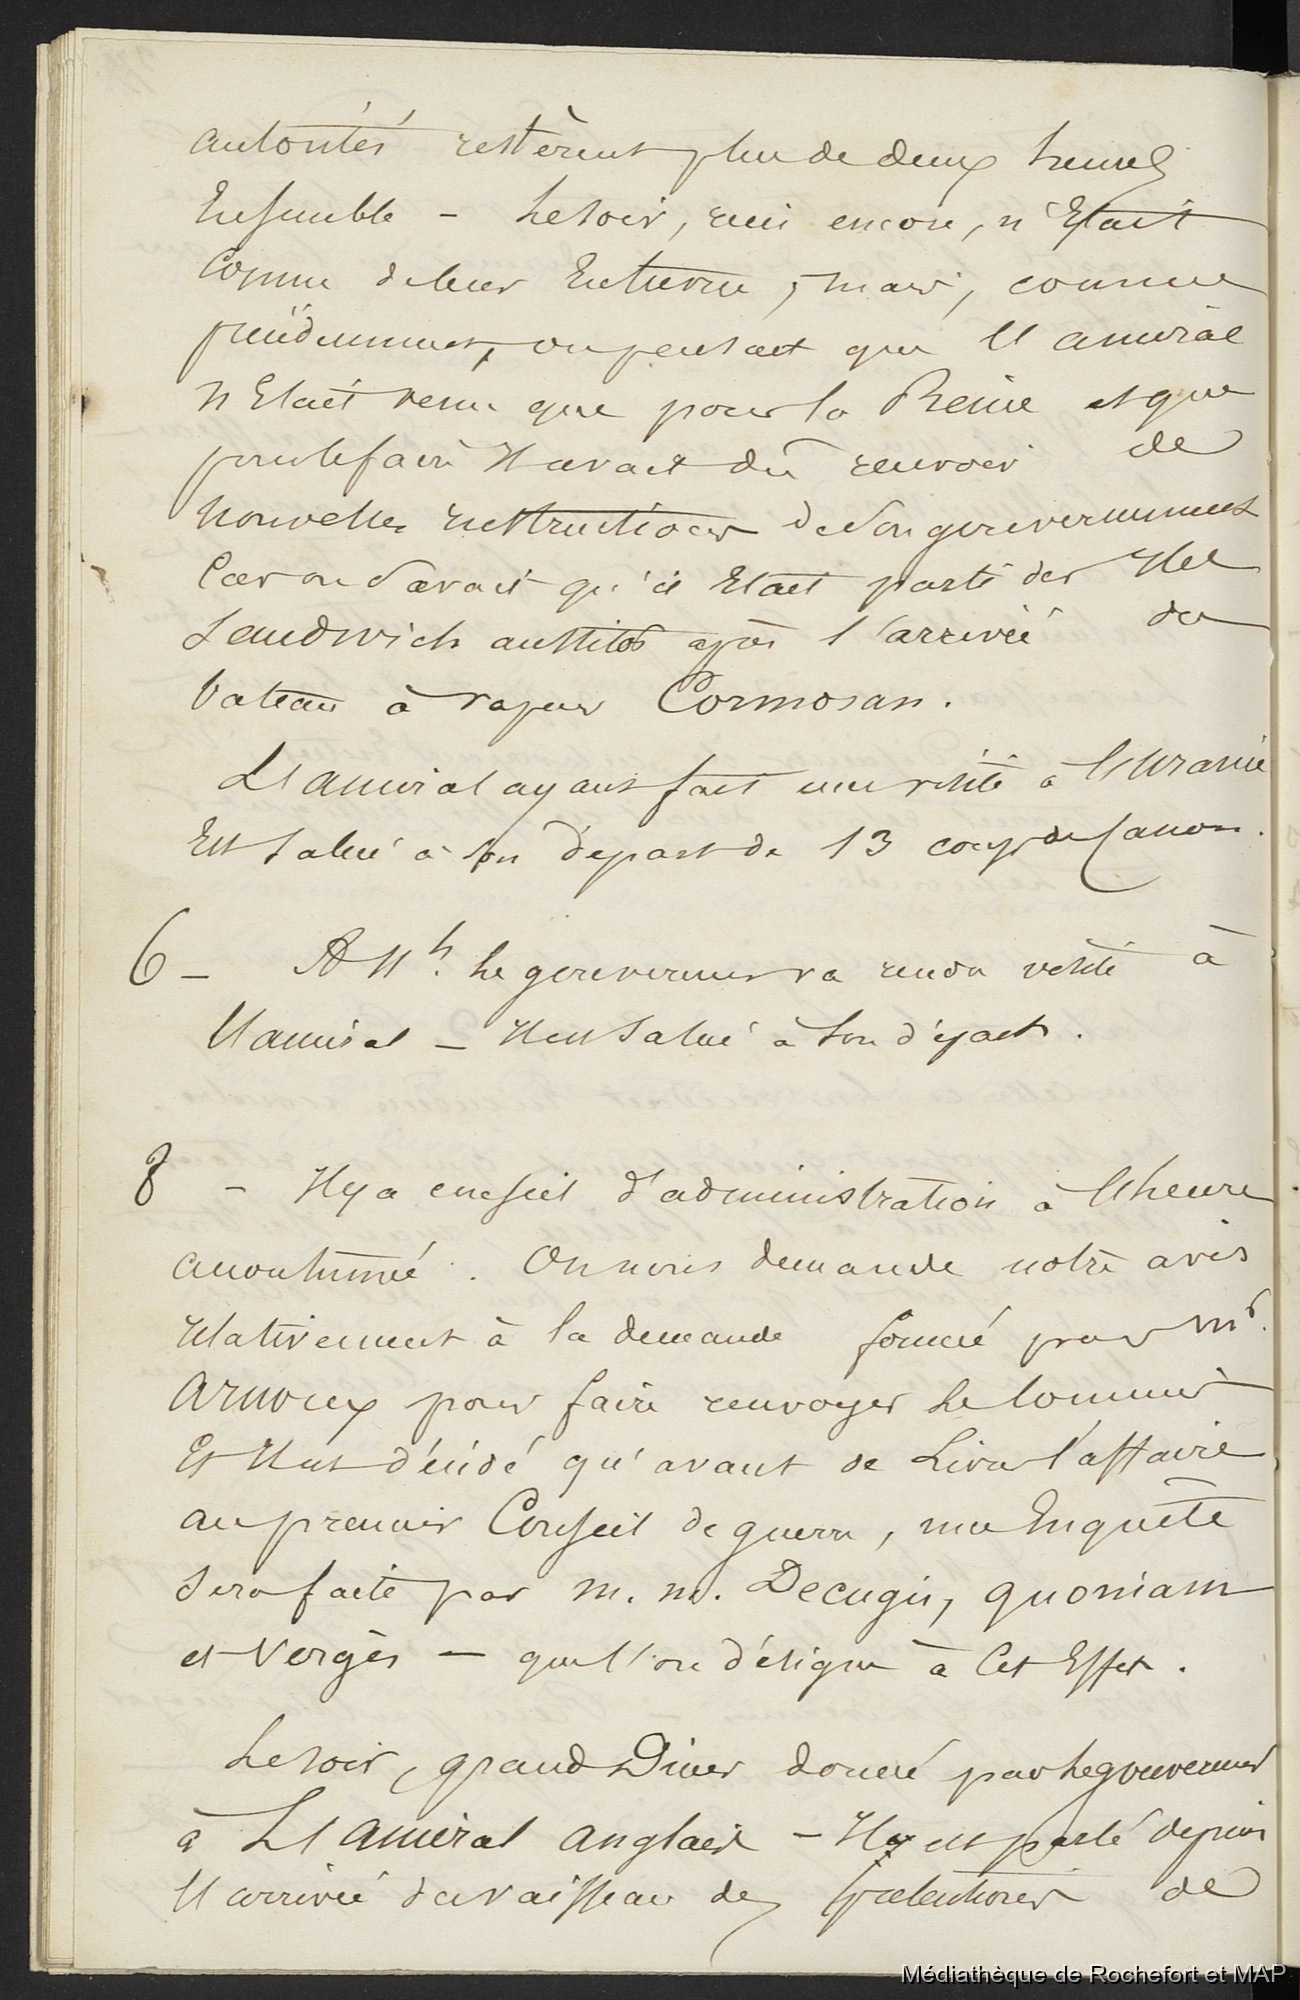 autorités restèrent plus de deux heures
Ensemble – Le soir, rien encore, n'Etait
Connu de leur Entrevue, mais, comme
précédemment, on pensait que l'amiral
n'Etait venu que pour la Reine et que
pour le faire Il avait dû recevoir de
nouvelles instructions de son gouvernement
Car on savait qu'il Etait parti des Iles
Sandwich aussitôt après l'arrivée du
bateau à vapeur Cormosan.
L'amiral ayant fait une visite à l'Uranie
Est salué à son départ de 13 coups de Canon.
6 – A 11 h. Le gouverneur va rendre visite à
l'amiral – Il est salué à son départ.
8 – Il y a conseil d'administration à l'heure
accoutumée. On nous demande notre avis
relativement à la demande formée par Mr.
Arnoux pour faire renvoyer
Et Il est décidé qu'avant de Livrer l'affaire
au premier Conseil de guerre, une Enquête
sera faite par m. m. Decugis, quoniam
et Vergès – que l'on désigne à Cet Effet.
Le soir, grand Diner donné par Le gouverneur
à L'amiral anglais – Il est parlé depuis
l'arrivée du vaisseau de de
Médiathèque de Rochefort et MAP